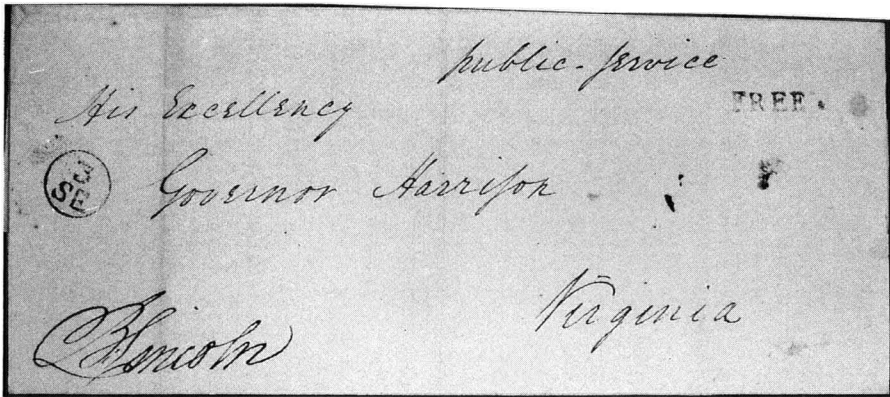 public-service
FREE
His Excellency
3
SE
Governor Harrison
Virginia
B Lincoln